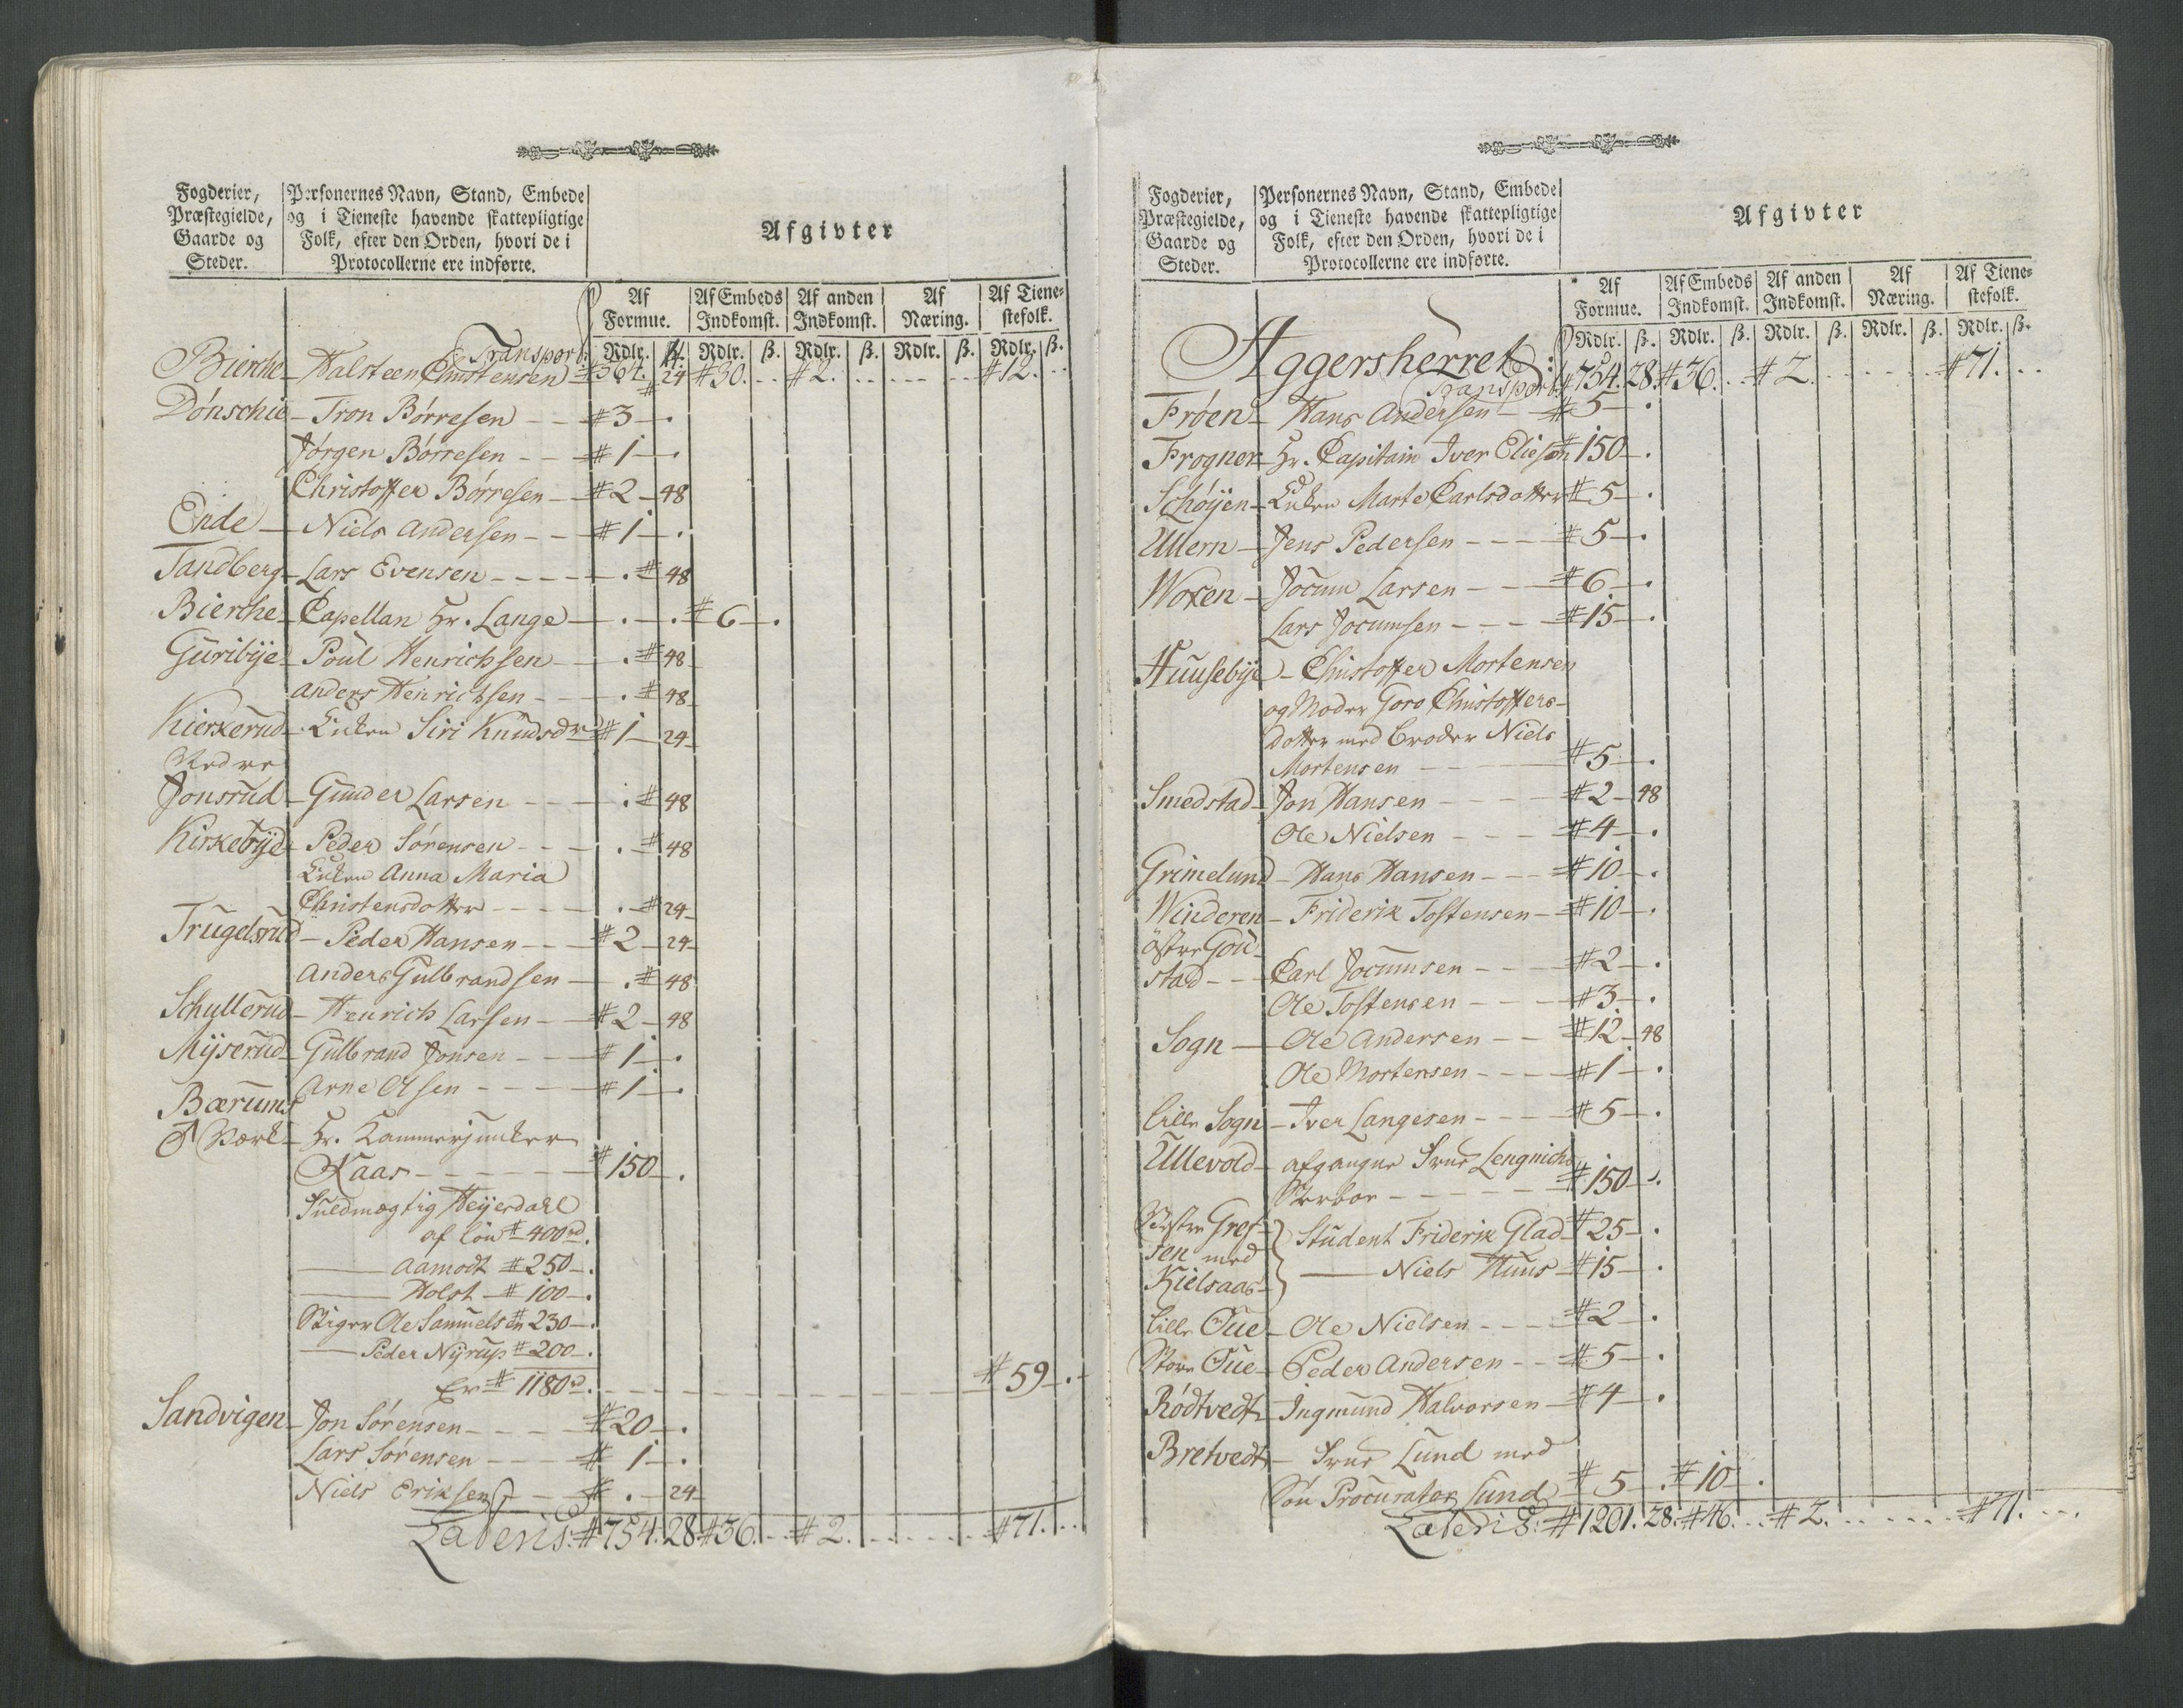 Fogderier, Præstegielde, Gaarde og Steder.
Personernes Navn, Stand, Embede og i Tieneste havende skattepligtige Folk, efter den Orden, hvori de i Protocollerne ere indførte.
Afgivter
Af Formue. Af Embeds Indkomst. Af anden Indkomst. Af Næring. Af Tienestefolk.
Rdlr. ß. Rdlr. ß. Rdlr. ß. Rdlr. ß. Rdlr. ß.
Transport #30. #2. #12.
Bierche - Halsteen Christensen - # 24
Dónschie - Tron Børresen - #3 - .
Jørgen Børresen - #1 - .
Christoffer Børresen - #2 - 48
Ende - Niels Andersen - #1 - .
Tandberg - Lars Evensen - . # 48
Bierche - Capellan Hr. Lange - . - . #6 - .
Guribye - Poul Henrichsen - . # 48
Anders Henrichsen - . # 48
Kierkerud - Enken Siri Knudsdr #1 - 24
Nedre
Jonsrud - Gunder Larsen - . # 48
Kirkebye - Peder Sørensen - . # 48
Enken Anna Maria
Christensdotter - . # 24
Trugelsrud - Peder Hansen - #2 - 24
Anders Gulbrandsen - . # 48
Schyllerud - Henrich Larsen - #2 - 48
Myserud - Gulbrand Jonsen - #1 - .
Arne Olsen - #1 - .
Bærums
Værk - Hr. Kammerjunker
Kaas - #150 - .
Fuldmægtig Heyerdahl
af lön #400rd.
— Aamodt #250 - .
— Holst - #100 - .
Stiger Ole Samuelsen #230 - .
— Peder Nyrup #200 - .
Er #1180rd. #59 - .
Sandvigen - Jon Sørensen - #20 - .
Lars Sørensen - #1 - .
Niels Eriksen - # . - 24
Lateris: #754. 28 #36. #2. #71.
Fogderier, Præstegielde, Gaarde og Steder.
Personernes Navn, Stand, Embede og i Tieneste havende skattepligtige Folk, efter den Orden, hvori de i Protocollerne ere indførte.
Afgivter
Af Formue. Af Embeds Indkomst. Af anden Indkomst. Af Næring. Af Tienestefolk.
Rdlr. ß. Rdlr. ß. Rdlr. ß. Rdlr. ß. Rdlr. ß.
Aggersherret:
Transport #754. 28. #36. #2. #71.
Frøen - Hans Andersen - #5 - .
Frogner - Hr. Capitain Iver Eliesen #150 - .
Schøyen - Enken Marte Carlsdotter #5 - .
Ullern - Jens Pedersen - #5 - .
Woxen - Jocum Larsen - #6 - .
Lars Jocumsen - #15 - .
Huusebye - Christoffer Mortensen
og Moder Goro Christoffers-
dotter med Broder Niels
Mortensen - #5 - .
Smedstad - Jon Hansen - #2 - 48
Ole Nielsen - #4 - .
Grimelund - Hans Hansen - #10 - .
Winderen - Friderik Tostensen - #10 - .
östre Gou-
stad - Carl Jocumsen - #2 - .
Ole Tostensen - #3 - .
Sogn - Ole Andersen - #12 - 48
Ole Mortensen - #1 - .
lille Sogn - Iver Langesen - #5 - .
Ullevold - afgangne Frue Lengnichs
Sterboe - #150 - .
Vestre Gref-
sen med
Kielsaas - } Student Friderik Glad #25 - .
— Niels Huus - #15 - .
lille Öue - Ole Nielsen - #2 - .
Store Öue - Peder Andersen - #5 - .
Rødtvedt - Ingmund Halvorsen - #4 - .
Bretvedt - Frue Lund med
Søn Procurator Lund #5 - . #10 - .
Lateris: #1201. 28. #46. #2. #71.